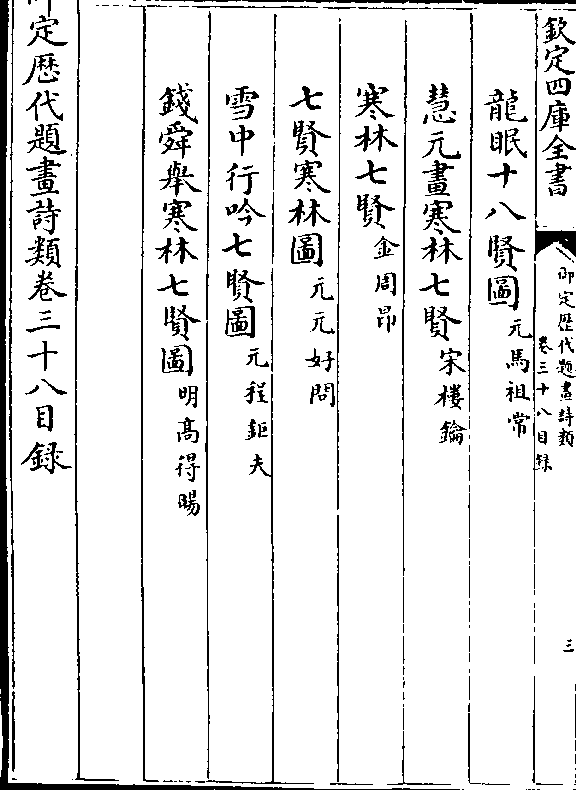 欽定四庫全書
御定歷代題畫詩類
卷三十八目録
三
龍眠十八賢圖 元馬祖常
慧元畫寒林七賢 宋樓鑰
寒林七賢 金周昂
七賢寒林圖 元元好問
雪中行吟七賢圖 元程鉅夫
錢舜舉寒林七賢圖 明高得暘
御定歷代題畫詩類卷三十八目録